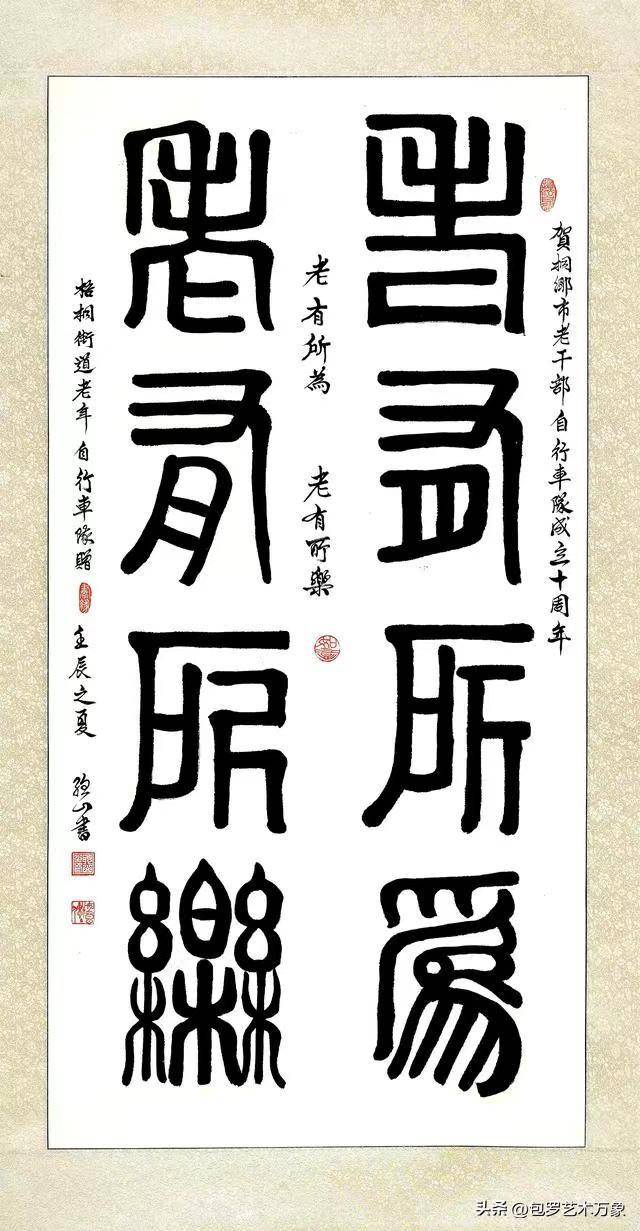 賀桐鄉市老干部自行車隊成立十周年
老有所為
老有所為 老有所樂
老有所樂
梧桐街道老年自行車隊贈 壬辰之夏 山書
头条 @包罗艺术万象